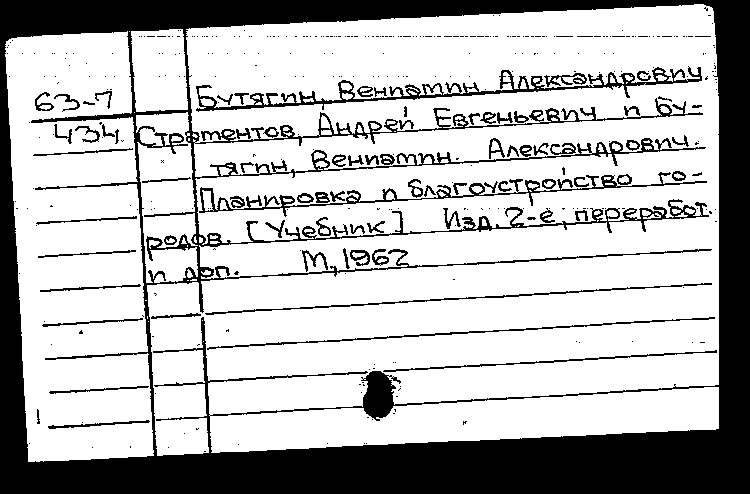 63-7 Бутягин, Вениамин Александрович.
434 Страментов, Андрей Евгеньевич и Бу-
тягин, Вениамин. Александрович.
Планировка и благоустройство го-
родов. [Учебник]. Изд. 2-е, переработ.
и доп. М., 1962